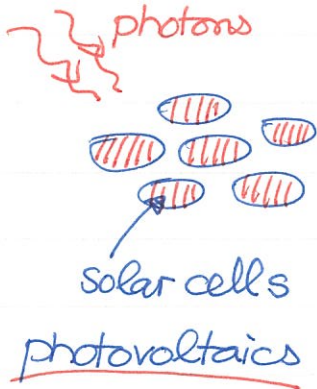 photons
solar cells
photovoltaics